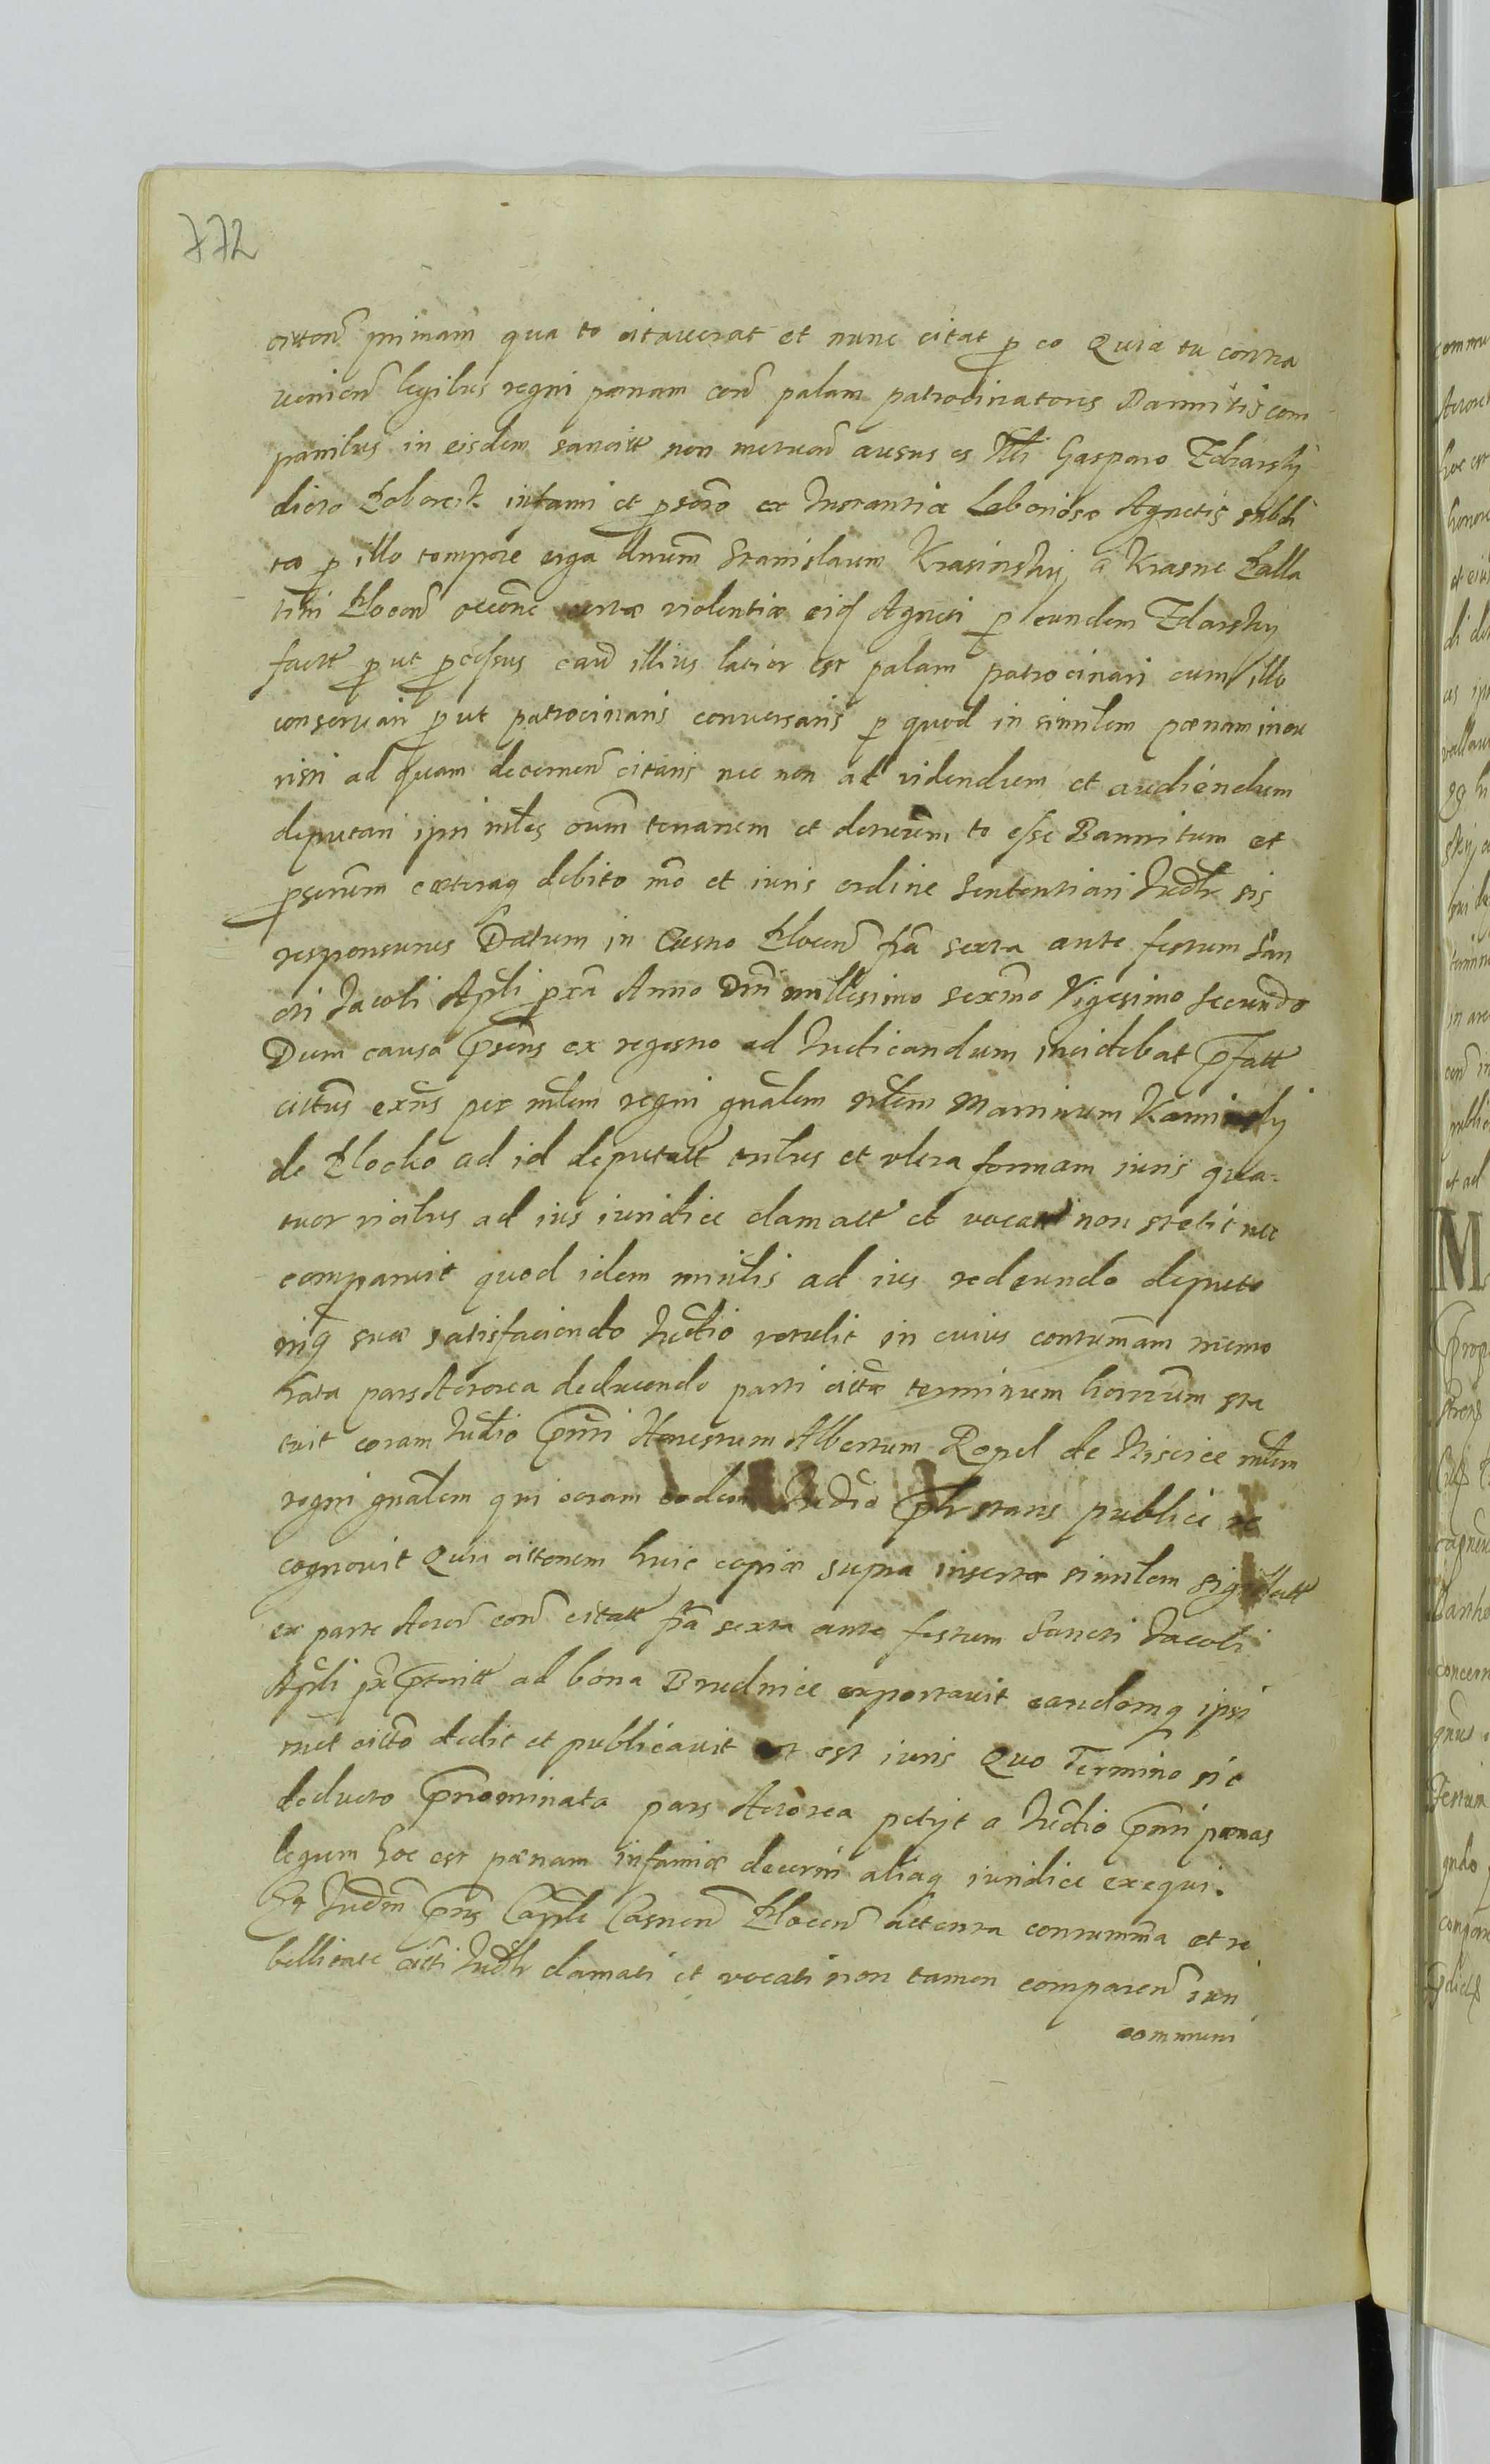 772
citton primam qua te citaverat et nunc citat p eo Quia tu contra
venien legibus regni pænam con palam patrocinatores Bannitis com
panibus in eisdem sancitt non metuen ausus es Nlli Gasparo Zdiarskÿ
dicto infami et pscro ex Instantia Laboriosæ Agnetis subdi
tæ p illo tempore erga dnum Stanislaum Krasinskÿ a Krasne Palla
tini Plocen occone certæ violentiæ eiq Agneti p eundem Zdarskÿ
factt p ut pcessus earu illius latior est palam patrocinari cum illo
conservari p ut patrocinaris conversaris p quod in similem pænam incu
risti ad quam decernen citaris nec non ad videndum et audiendum
deputari ipri mles oum tenanem et detenem te esse Bannitum et
psenem cæteraq debito mo et iuris ordine Sententiari Iudlr sis
responsurus Datum in Castro Plocen fra sexta ante festum San
cti Jacobi Apli pxa Anno Dni millesimo sexmo Vigesimo Secundo
Dum causa prns ex regestro ad Iudicandum incidebat pfatt
cittus exns per mlem regni gnalem Martinum Kaminskÿ
de Plocko ad id deputatt tribus et vltra formam iuris qua-
tuor vicibus ad ius iuridice clamatt et vocatt non stetit nec
comparuit quod idem ministlis ad ius redeundo deputo
niq suæ satisfaciendo Iudio retulit in cuius contumam memo
rata pars Actorea deducendo parti cittæ terminum hornum sta
tuit coram Iudio prnti Honestum Albertum Ropel de mlem
regni gnalem qui coram eodem Iudio plr stans publice re
cognovit Quia cittonem huic copiæ supra insertæ similem sigillatt
ex parte Actor con citatt fra sexta ante festum Sancti Jacobi
Apli px ptentt ad bona Brudnice exportavit eandemq ipsi
met citto dedit et publicavit ut est iuris Quo Termino sic
deducto prnominata pars Actorea petijt a Iudio prnti pænas
legum hoc est pænam infamiæ decerni aliaq iuridice exequi.
Et Iudm prns Caple Casnen Plocen attenta contumma et re
bellitate citti Iudlr clamati et vocati non tamen comparen iuri
communi